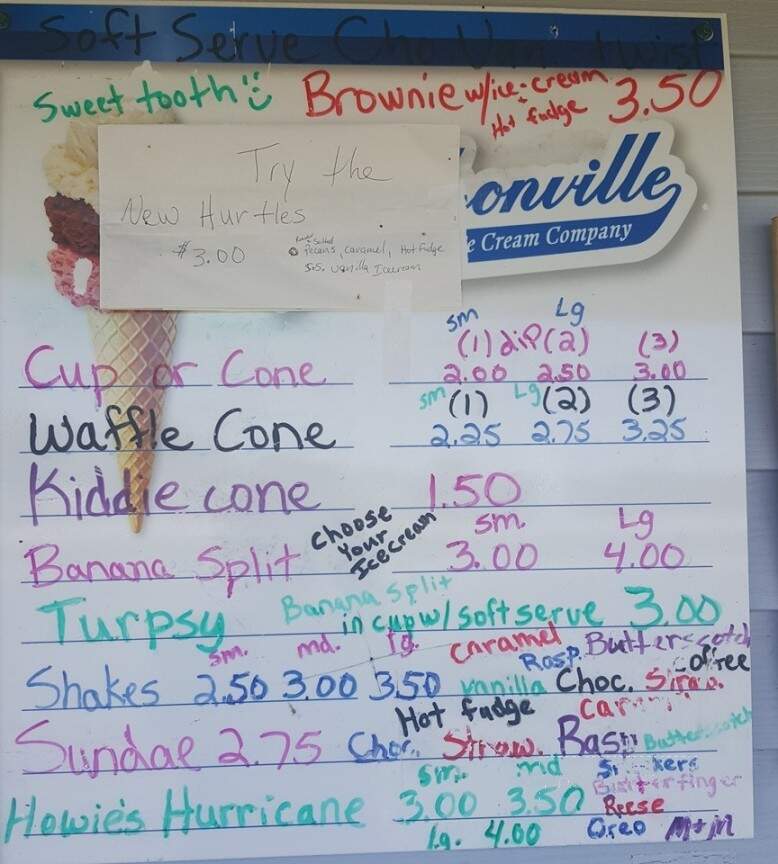 Soft Serve Cho Van twist
Sweet tooth Brownie w/ice-cream 3.50
Hot fudge
Try the
New Hurtles
$3.00
Salted
Pecans, caramel, Hot Fudge
S.S. Vanilla Icecream
onville
e Cream Company
sm Lg
(1) dip (2) (3)
Cup or Cone 2.00 2.50 3.00
sm (1) Lg (2) (3)
Waffle Cone 2.25 2.75 3.25
Kiddie cone 1.50
Choose Your Icecream
sm Lg
Banana Split 3.00 4.00
Banana Split
Turpsy in cup w/ soft serve 3.00
sm. md. lg. Caramel Rasp. Butterscotch
Coffee
Shakes 2.50 3.00 3.50 vanilla Choc. Straw.
Hot fudge
Sundae 2.75 Choc. Straw. Rasp Butterscotch
sm. md
Butterfinger
Howie's Hurricane 3.00 3.50 Reese
lg. 4.00 Oreo M+M